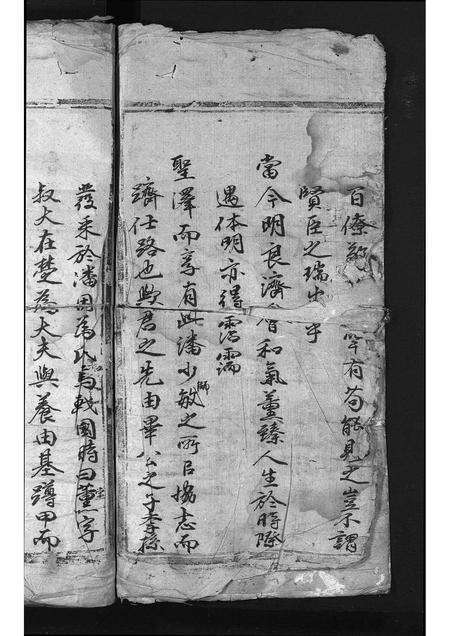 百僚敬 罕有苟能見之豈不謂
賢臣之瑞出乎
當今明良濟會和氣薰臻人生於時際
遇休明亦得霑濡
聖澤而享有此潘少敏之所以協志而
躋仕路也歟君之先由畢公之子季孫
發采於潘因為氏焉戰國時曰董字
叔大在楚為大夫與養由基蹲甲而